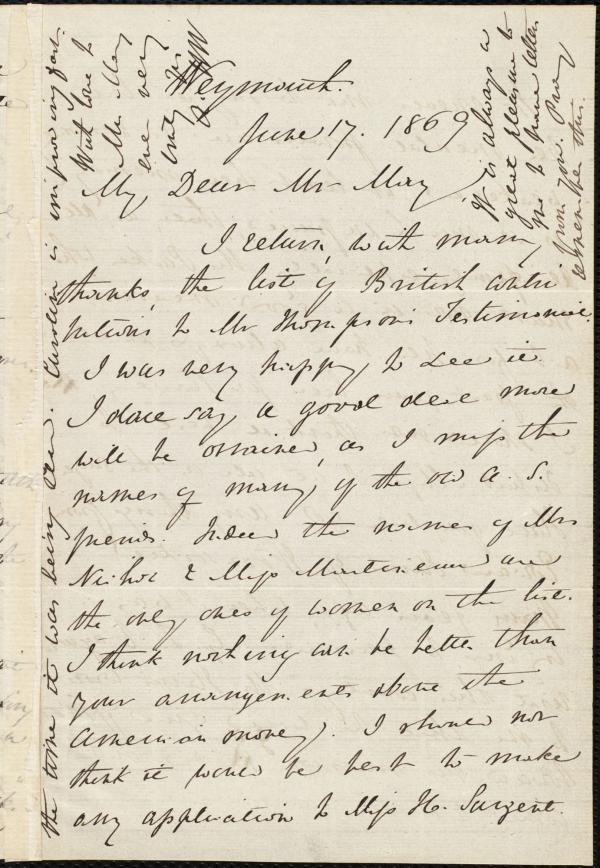 Weymouth.
June 17. 1869
My Dear Mr May,
I return, with many
thanks, the list of British contri
butions to Mr Thompson's Testimonial.
I was very happy to see it.
I dare say a good deal more
will be obtained, as I miss the
names of many of the old A. S.
friends. Indeed the names of Mrs
Nichol & Miss Martineau are
the only ones of women on the list.
I think nothing can be better than
your arrangements about the
American money. I should not
think it would be best to make
any application to Miss H. Sargent.
the time it was being . Caroline is improving fast.
With love to
Mrs May
ever very
truly yrs
It is always a
great pleasure to
me to have letters
from you. Pray
remember this.